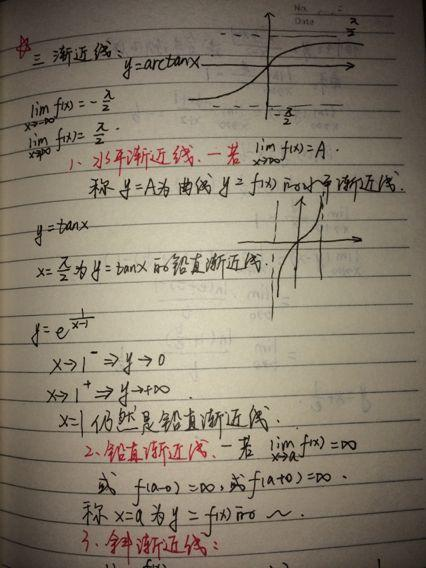 No. :
Date
三 渐近线:
y=arctanx
π/2
-π/2
lim x→-∞ f(x) = -π/2
lim x→∞ f(x) = π/2.
1、水平渐近线.—若 lim x→∞ f(x)=A.
称 y=A为曲线 y=f(x)的水平渐近线.
y=tanx
x=π/2为y=tanx的铅直渐近线.
y=e^(1/(x-1))
x→1⁻⇒y→0
x→1⁺⇒y→+∞.
x=1仍然是铅直渐近线.
2、铅直渐近线.—若 lim x→a f(x)=∞
或 f(a-0)=∞,或f(a+0)=∞.
称 x=a 为 y=f(x)的～.
3、斜渐近线: